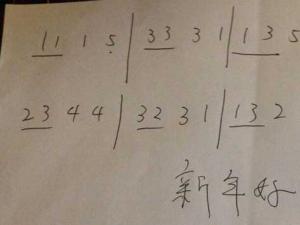 1 1 1 5 | 3 3 3 1 | 1 3 5
2 3 4 4 | 3 2 3 1 | 1 3 2
新年好